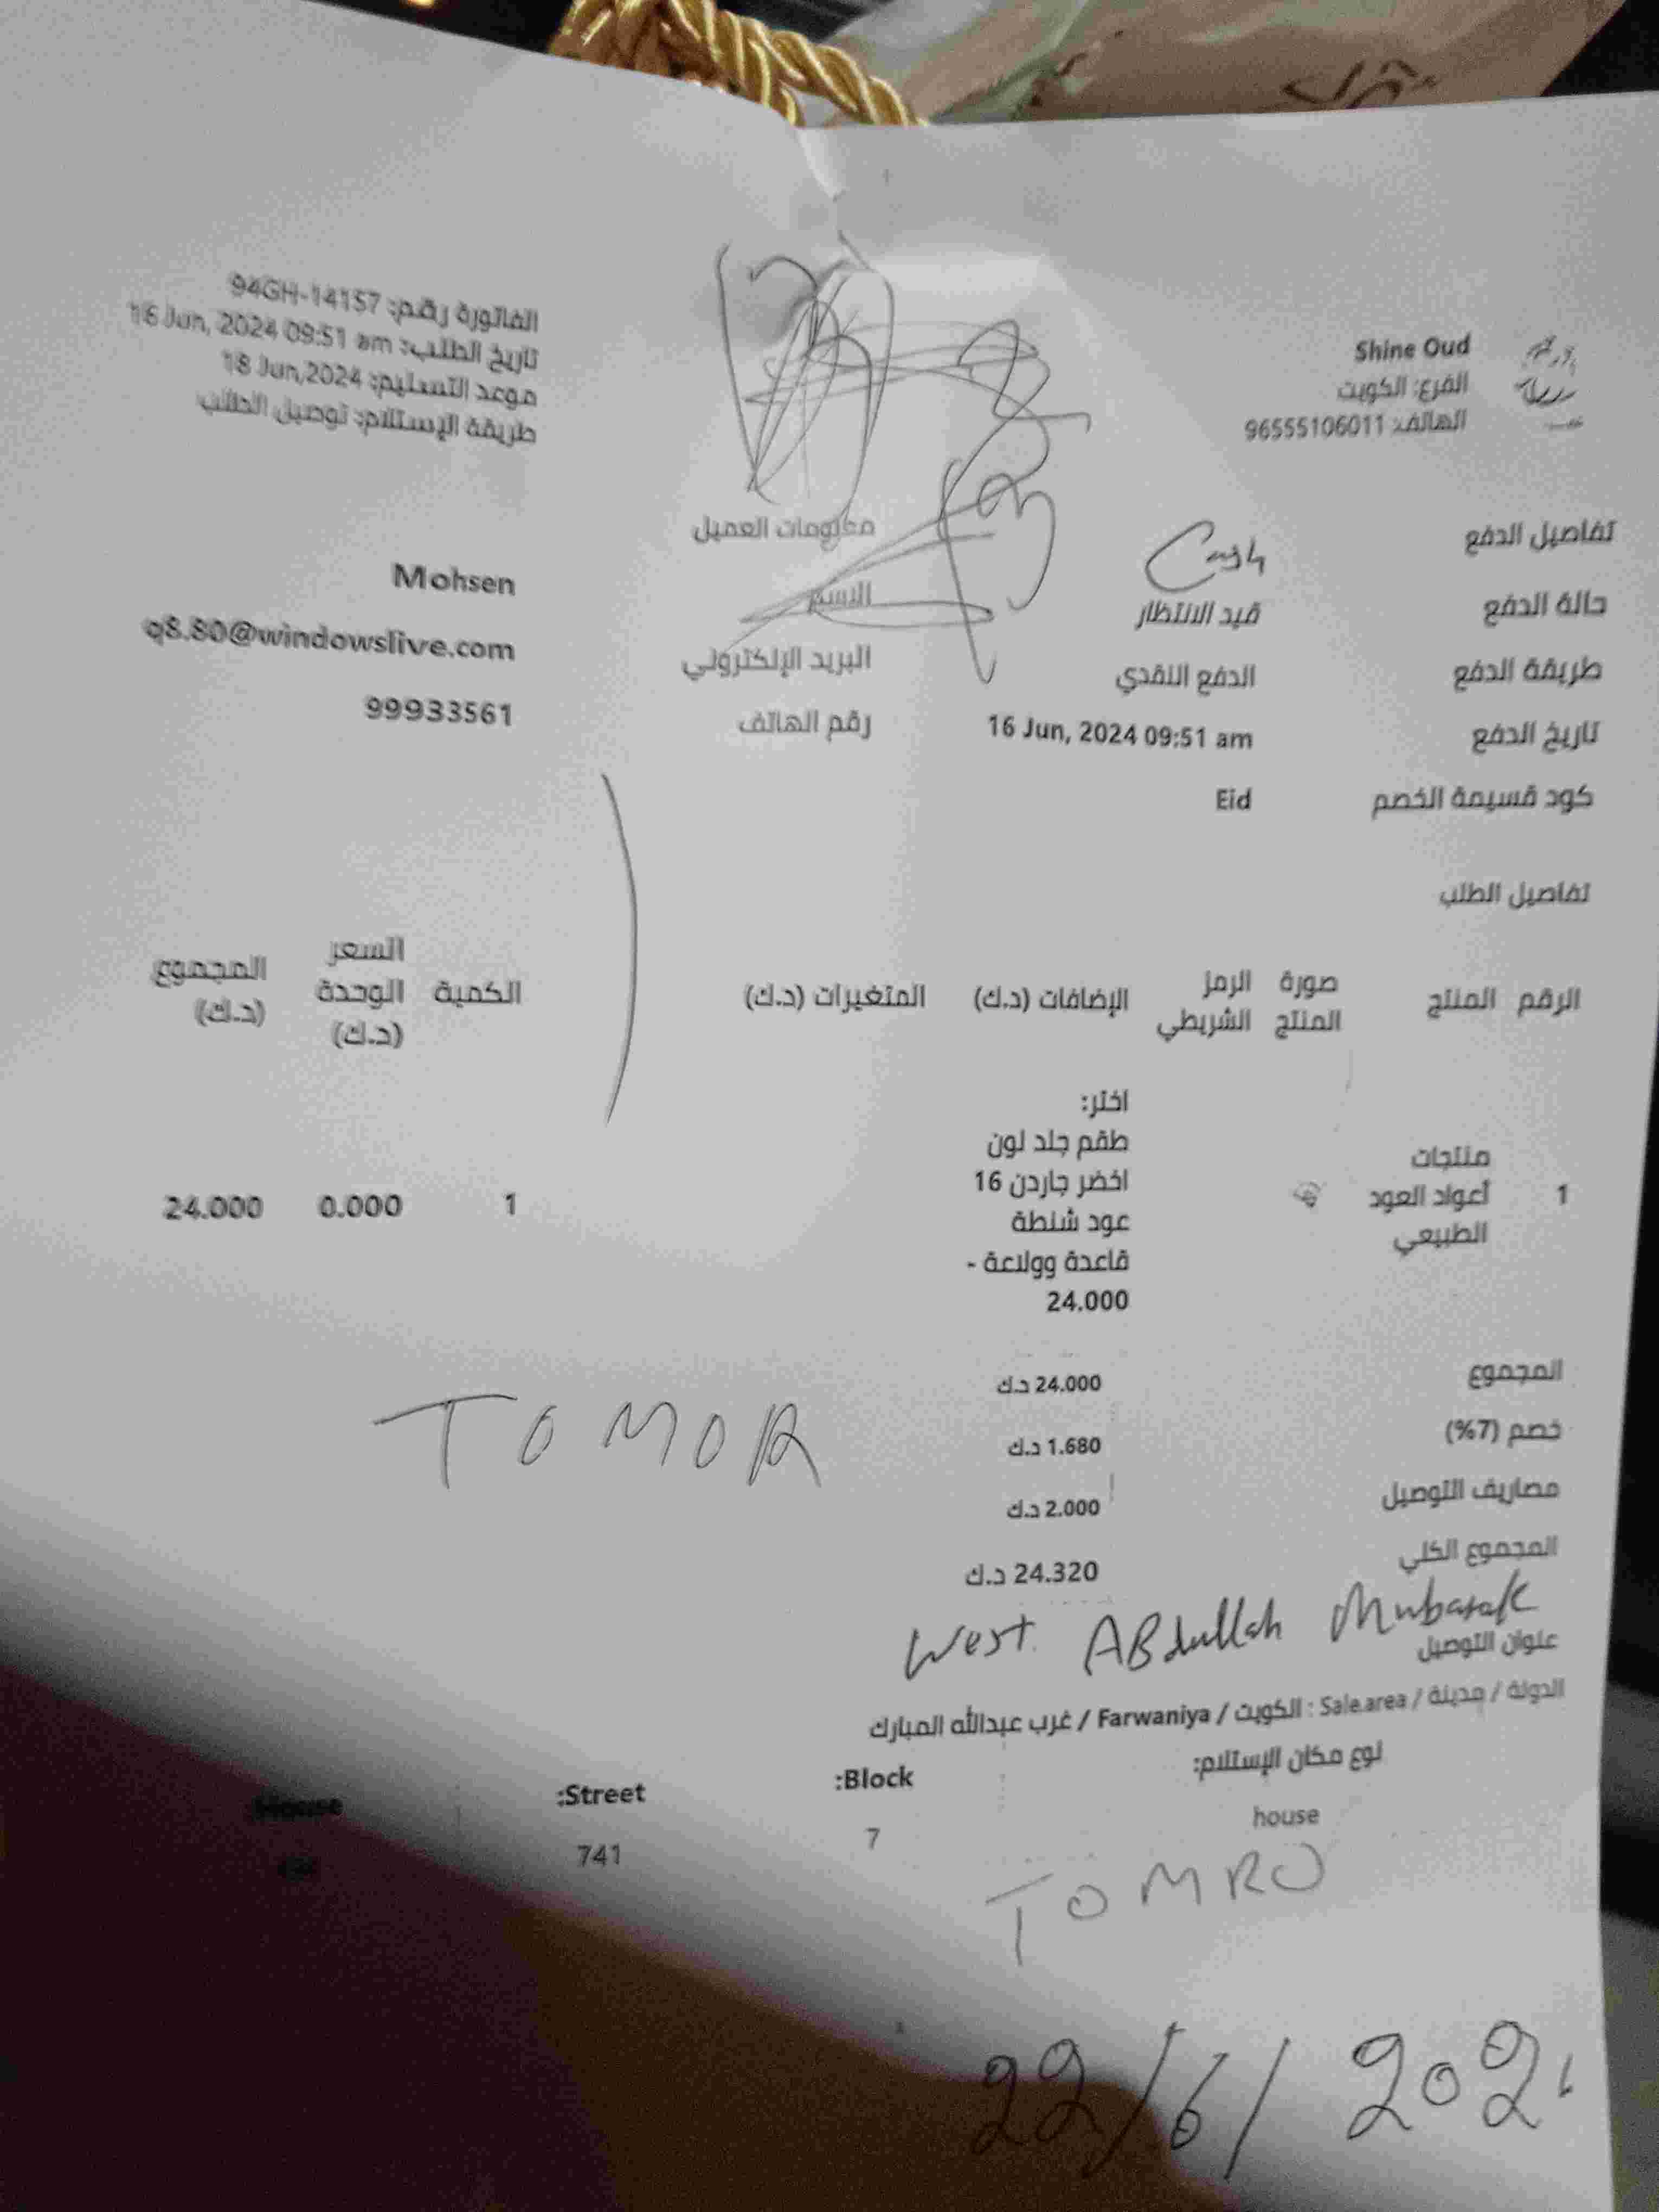 Shine Oud
الفرع: الكويت
الهاتف: 96555106011
الفاتورة رقم: 94GH-14157
تاريخ الطلب: 16 Jun, 2024 09:51 am
موعد التسليم: 18 Jun,2024
طريقة الإستلام: توصيل الطلب
تفاصيل الدفع
Cash
حالة الدفع قيد الانتظار
طريقة الدفع الدفع النقدي
تاريخ الدفع 16 Jun, 2024 09:51 am
كود قسيمة الخصم Eid
معلومات العميل
الاسم Mohsen
البريد الإلكتروني q8.80@windowslive.com
رقم الهاتف 99933561
تفاصيل الطلب
الرقم المنتج صورة المنتج الرمز الشريطي الإضافات (د.ك) المتغيرات (د.ك) الكمية السعر الوحدة (د.ك) المجموع (د.ك)
1 منتجات أعواد العود الطبيعي
اختر:
طقم جلد لون
اخضر جاردن 16
عود شنطة
قاعدة وولاعة -
24.000
1 0.000 24.000
المجموع 24.000 د.ك
خصم (7%) 1.680 د.ك
TOMOR
مصاريف التوصيل 2.000 د.ك
المجموع الكلي 24.320 د.ك
West ABdullah Mubarak
عنوان التوصيل
الدولة / مدينة / Sale.area : الكويت / Farwaniya / غرب عبدالله المبارك
نوع مكان الإستلام: Block: Street: House
house 7 741
TOMRO
22/6/202